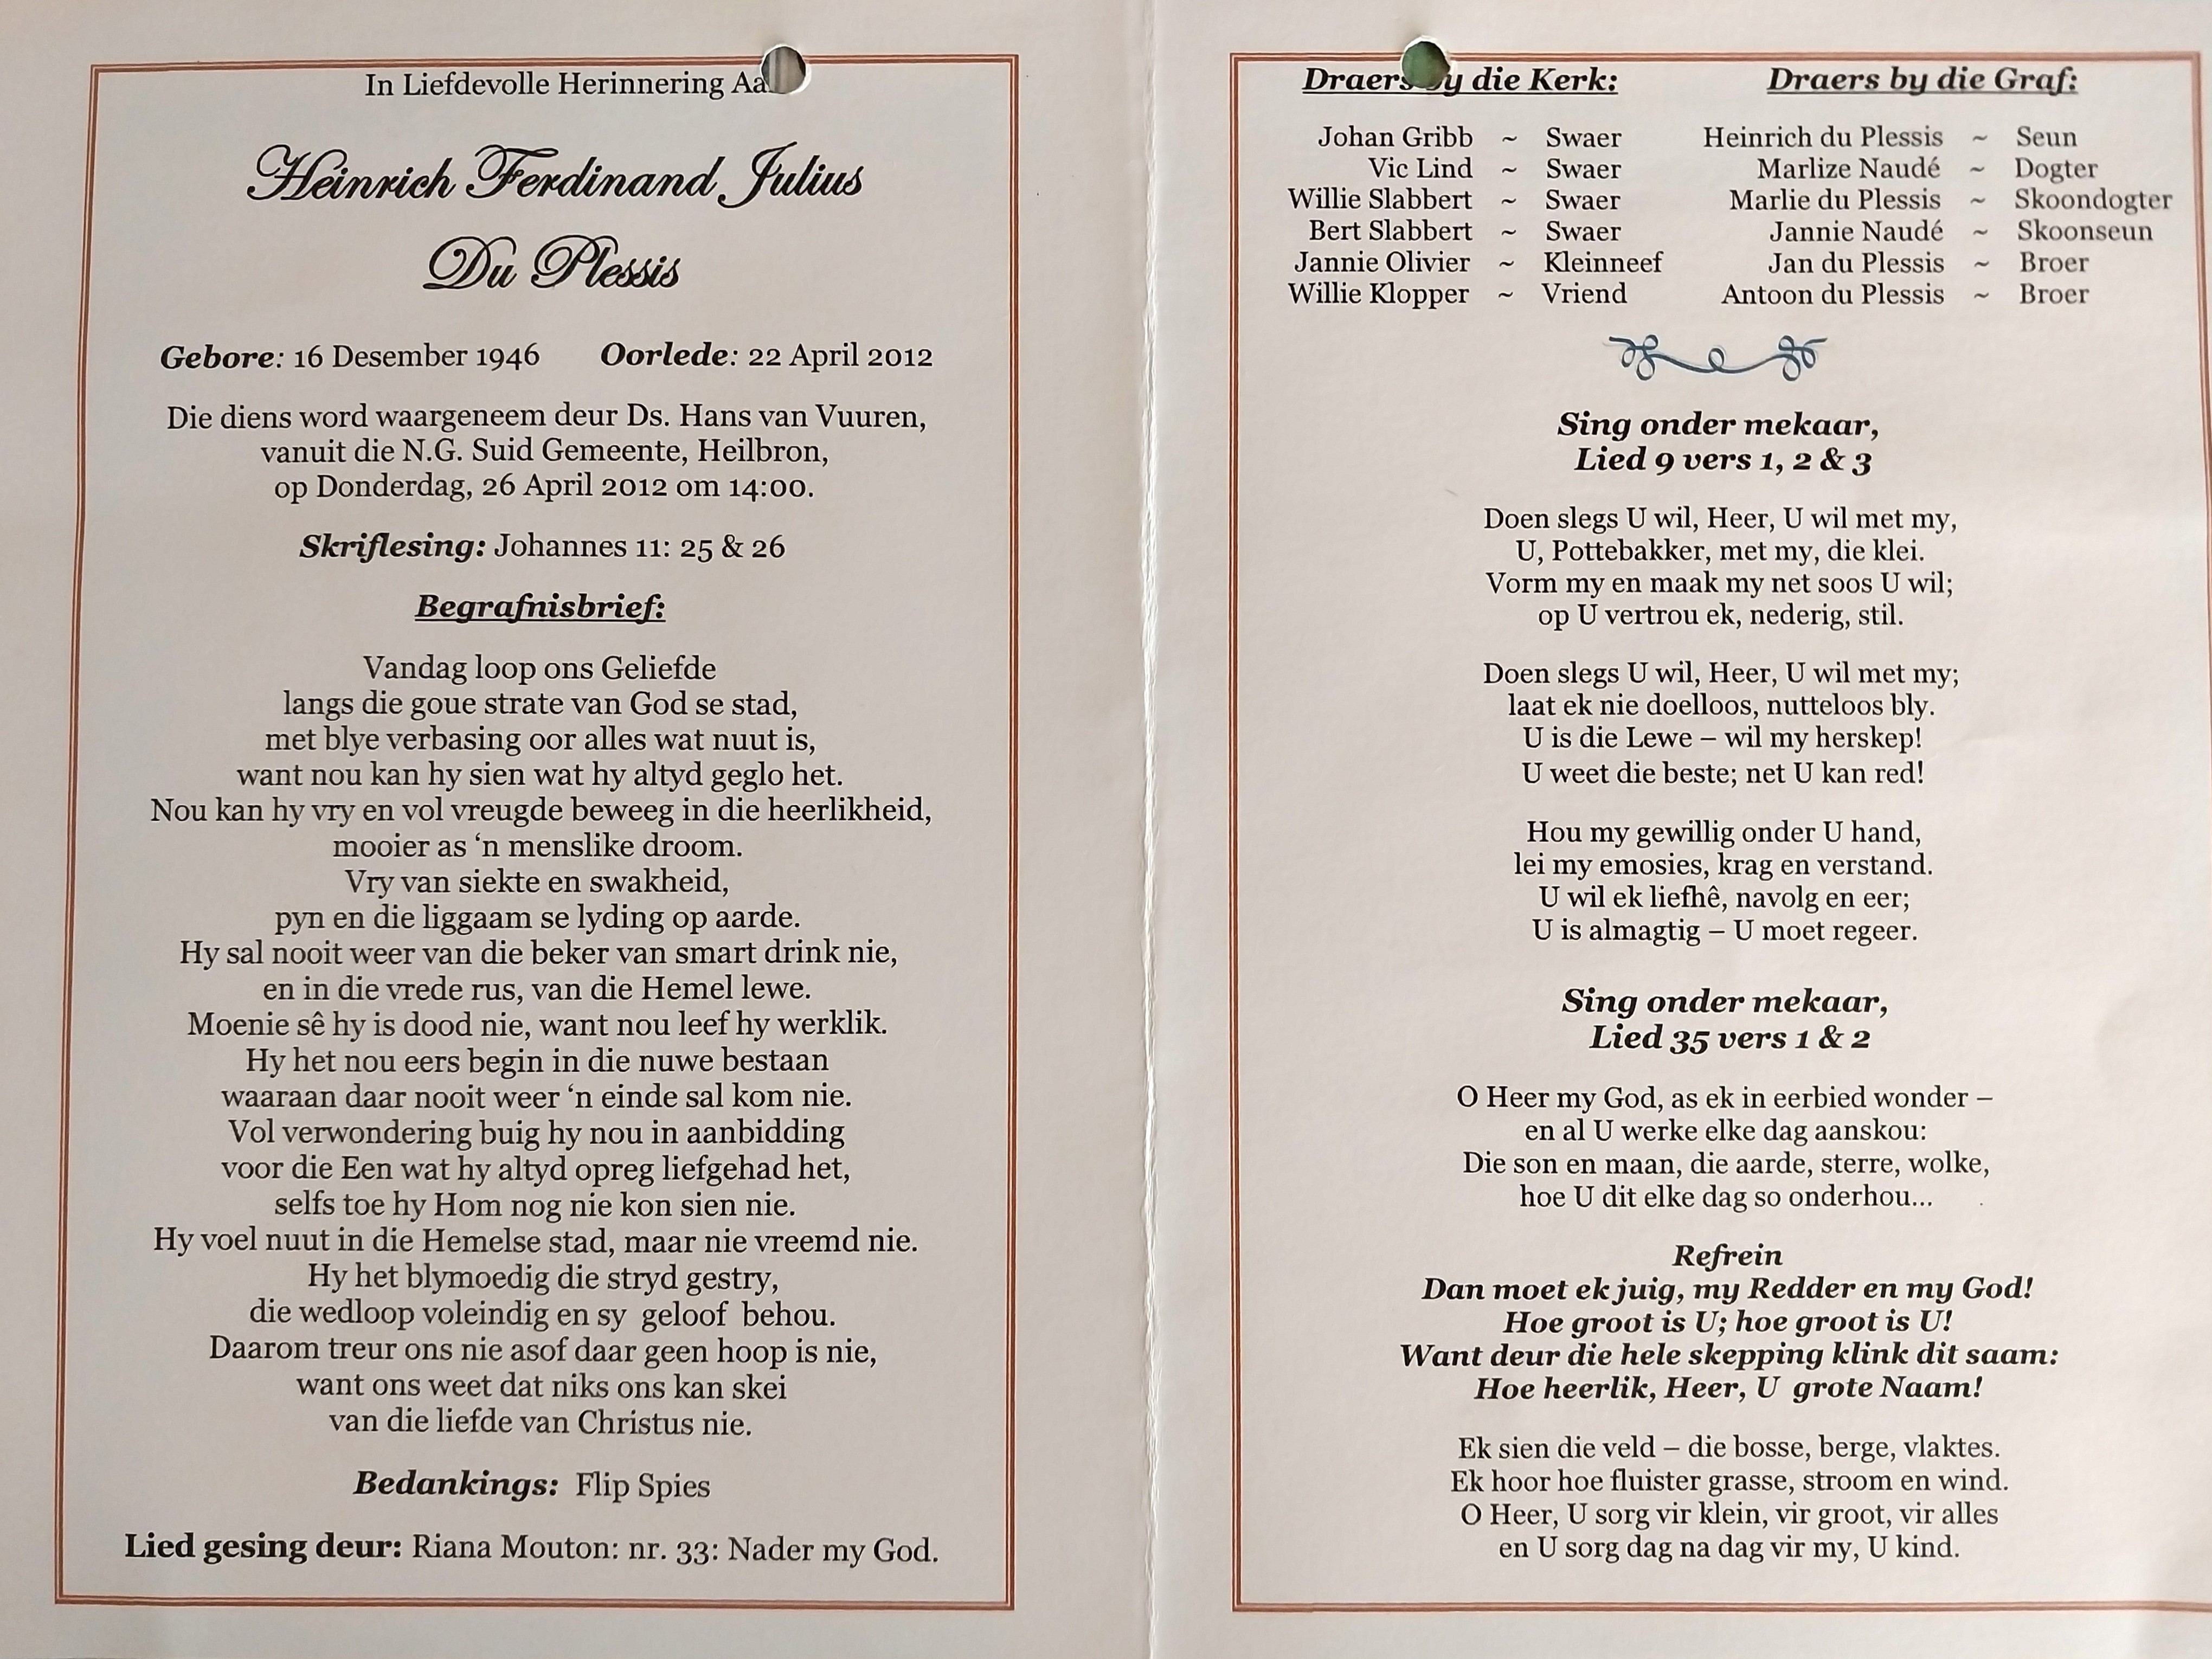 In Liefdevolle Herinnering
Heinrich Ferdinand Julius
Du Plessis
Gebore: 16 Desember 1946 Oorlede: 22 April 2012
Die diens word waargeneem deur Ds. Hans van Vuuren,
vanuit die N.G. Suid Gemeente, Heilbron,
op Donderdag, 26 April 2012 om 14:00.
Skriflesing: Johannes 11: 25 & 26
Begrafnisbrief:
Vandag loop ons Geliefde
langs die goue strate van God se stad,
met blye verbasing oor alles wat nuut is,
want nou kan hy sien wat hy altyd geglo het.
Nou kan hy vry en vol vreugde beweeg in die heerlikheid,
mooier as ‘n menslike droom.
Vry van siekte en swakheid,
pyn en die liggaam se lyding op aarde.
Hy sal nooit weer van die beker van smart drink nie,
en in die vrede rus, van die Hemel lewe.
Moenie sê hy is dood nie, want nou leef hy werklik.
Hy het nou eers begin in die nuwe bestaan
waaraan daar nooit weer ‘n einde sal kom nie.
Vol verwondering buig hy nou in aanbidding
voor die Een wat hy altyd opreg liefgehad het,
selfs toe hy Hom nog nie kon sien nie.
Hy voel nuut in die Hemelse stad, maar nie vreemd nie.
Hy het blymoedig die stryd gestry,
die wedloop voleindig en sy geloof behou.
Daarom treur ons nie asof daar geen hoop is nie,
want ons weet dat niks ons kan skei
van die liefde van Christus nie.
Bedankings: Flip Spies
Lied gesing deur: Riana Mouton: nr. 33: Nader my God.
Draers by die Kerk: Draers by die Graf:
Johan Gribb ~ Swaer Heinrich du Plessis ~ Seun
Vic Lind ~ Swaer Marlize Naudé ~ Dogter
Willie Slabbert ~ Swaer Marlie du Plessis ~ Skoondogter
Bert Slabbert ~ Swaer Jannie Naudé ~ Skoonseun
Jannie Olivier ~ Kleinneef Jan du Plessis ~ Broer
Willie Klopper ~ Vriend Antoon du Plessis ~ Broer
Sing onder mekaar,
Lied 9 vers 1, 2 & 3
Doen slegs U wil, Heer, U wil met my,
U, Pottebakker, met my, die klei.
Vorm my en maak my net soos U wil;
op U vertrou ek, nederig, stil.
Doen slegs U wil, Heer, U wil met my;
laat ek nie doelloos, nutteloos bly.
U is die Lewe – wil my herskep!
U weet die beste; net U kan red!
Hou my gewillig onder U hand,
lei my emosies, krag en verstand.
U wil ek liefhê, navolg en eer;
U is almagtig – U moet regeer.
Sing onder mekaar,
Lied 35 vers 1 & 2
O Heer my God, as ek in eerbied wonder –
en al U werke elke dag aanskou:
Die son en maan, die aarde, sterre, wolke,
hoe U dit elke dag so onderhou...
Refrein
Dan moet ek juig, my Redder en my God!
Hoe groot is U; hoe groot is U!
Want deur die hele skepping klink dit saam:
Hoe heerlik, Heer, U grote Naam!
Ek sien die veld – die bosse, berge, vlaktes.
Ek hoor hoe fluister grasse, stroom en wind.
O Heer, U sorg vir klein, vir groot, vir alles
en U sorg dag na dag vir my, U kind.